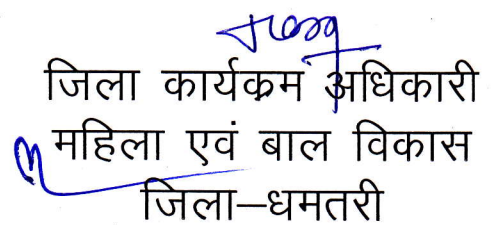 जिला कार्यक्रम अधिकारी
महिला एवं बाल विकास
जिला–धमतरी